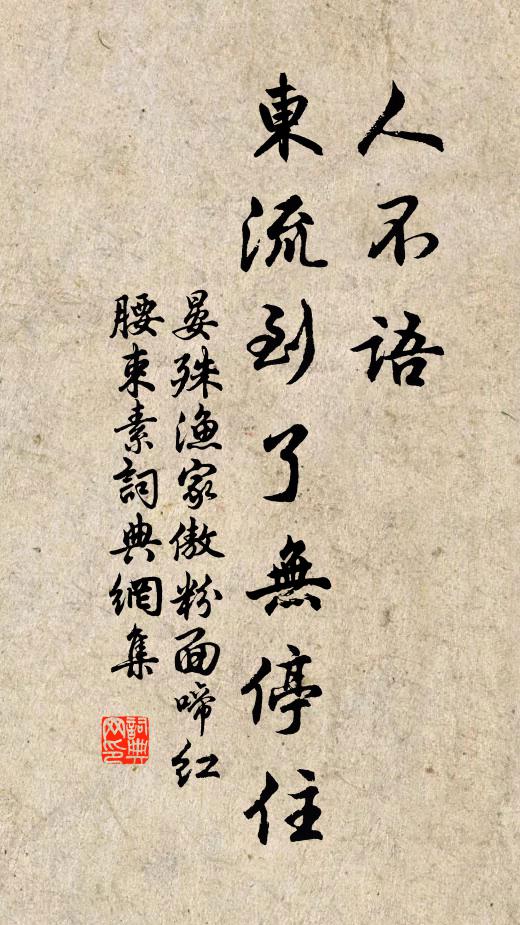 人不語
東流到了無停住
晏殊漁家傲粉面啼紅
腰束素詞典網集
詞典网印